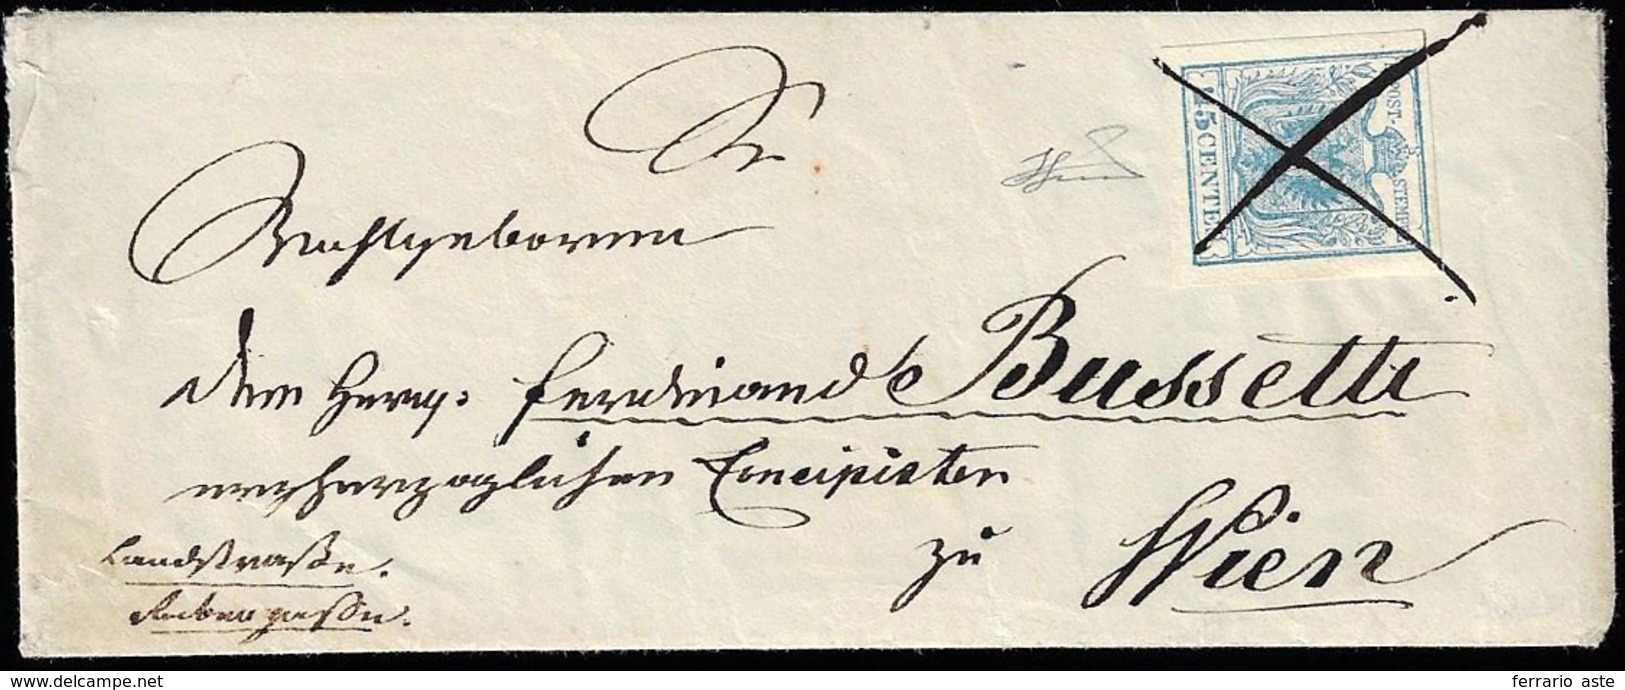 Sr
Wohlgeboren
dem Herrn: Ferdinand Bussetti
erzherzoglichen Concipisten
zu Wien
Landstraße.
POST-STEMPEL
CENTES
delcampe.net
ferrario aste